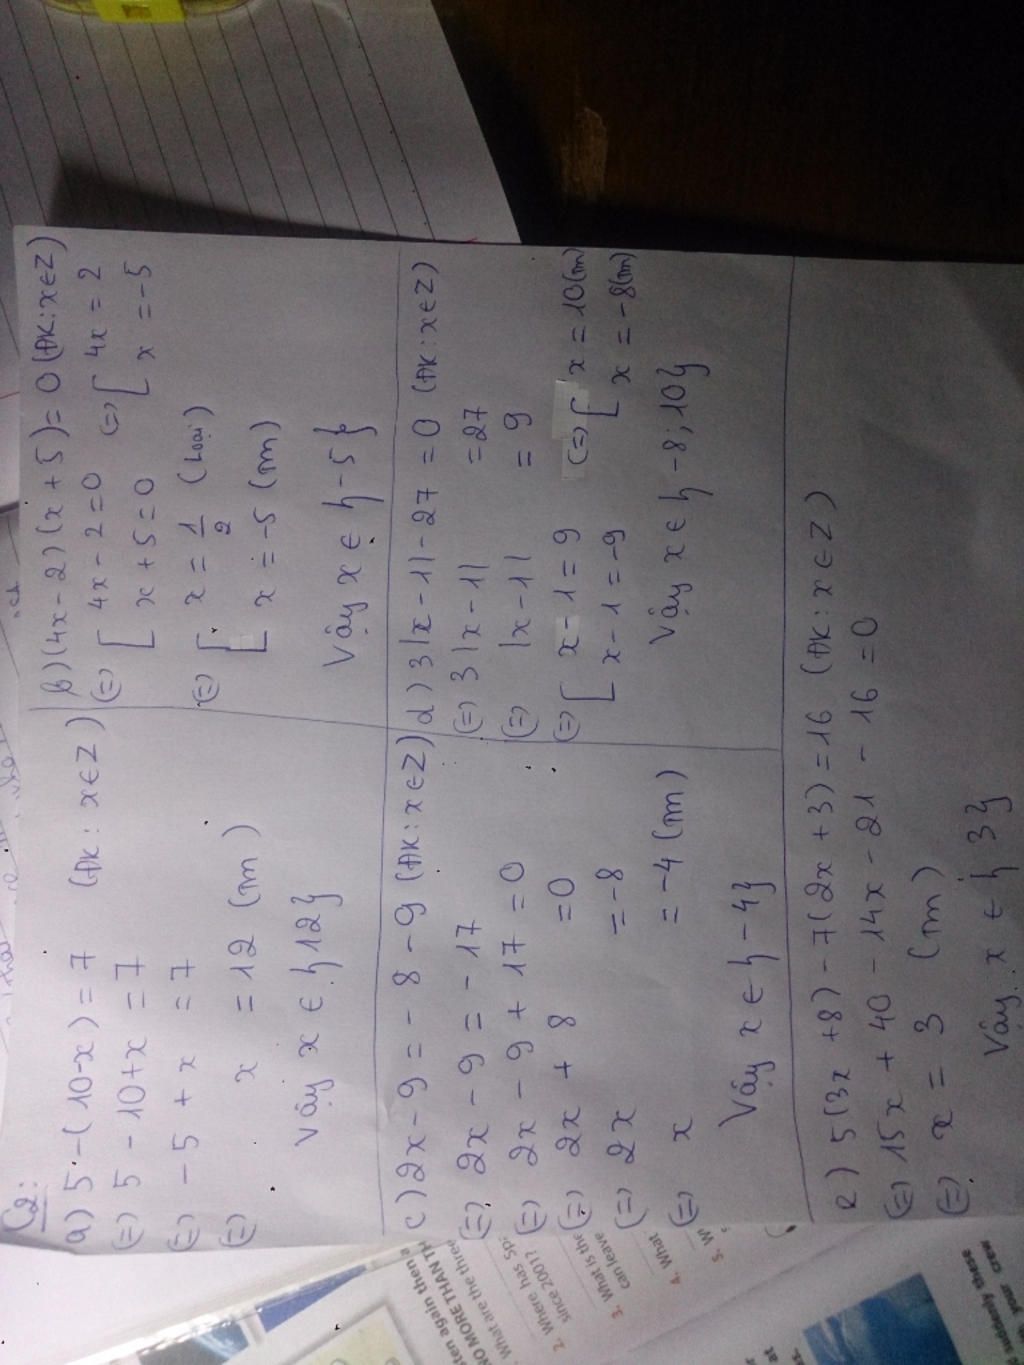 C2:
a) 5 - (10-x) = 7 (ĐK: x∈Z)
(=) 5 - 10+x = 7
(=) -5 + x = 7
(=) x = 12 (tm)
Vậy x ∈ {12}
b) (4x-2)(x+5) = 0 (ĐK: x∈Z)
(=) [ 4x - 2 = 0 (=) [ 4x = 2
x + 5 = 0 x = -5
(=) [ x = 1/2 (Loại)
x = -5 (tm)
Vậy x ∈ {-5}
c) 2x - 9 = -8 - 9 (ĐK: x∈Z)
(=) 2x - 9 = -17
(=) 2x - 9 + 17 = 0
(=) 2x + 8 = 0
(=) 2x = -8
(=) x = -4 (tm)
Vậy x ∈ {-4}
d) 3|x-1| - 27 = 0 (ĐK: x∈Z)
(=) 3|x-1| = 27
(=) |x-1| = 9
(=) [ x-1 = 9 (=) [ x = 10 (tm)
x-1 = -9 x = -8 (tm)
Vậy x ∈ {-8; 10}
e) 5(3x+8) - 7(2x+3) = 16 (ĐK: x∈Z)
(=) 15x + 40 - 14x - 21 - 16 = 0
(=) x = 3 (tm)
Vậy x ∈ {3}
again then
NO MORE THAN TH
What are the three
2. Where has
since 2001?
3. What is the
can leave
4. What
5.
suddenly these
your crew
at